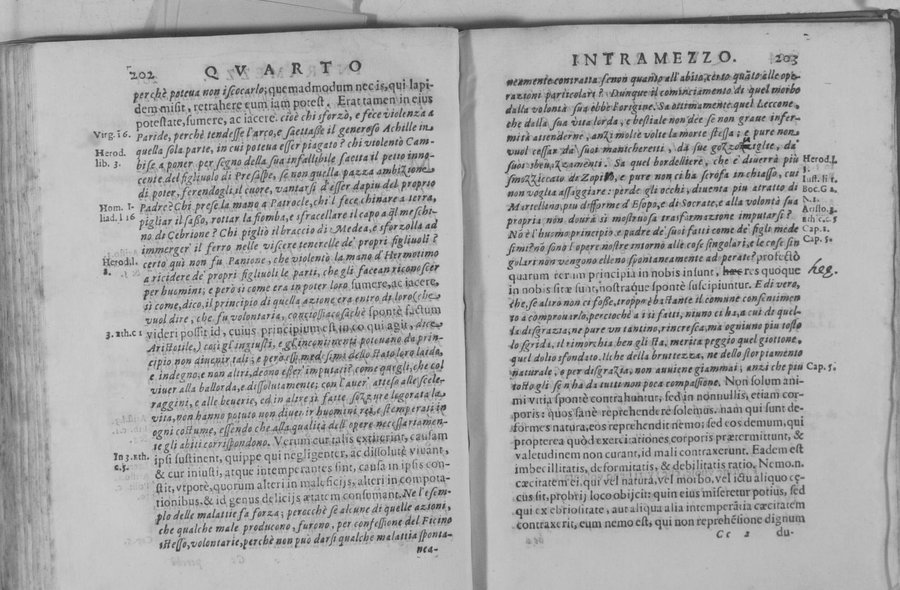 202 QVARTO
perchè poteua non iscocarlo; quemadmodum nec is, qui lapi-
dem misit, retrahere eum iam potest. Erat tamen in eius
potestate, sumere, ac iacere. cioè chi sforzò, e fece violenza a
Virg. i6. Paride, perchè tendesse l'arco, e saettasse il generoso Achille in
Herod. quella sola parte, in cui poteua esser piagato? chi violentò Cam-
lib. 3. bise a poner per segno della sua infallibile saetta il petto inno-
cente del figliuolo di Presaspe, se non quella pazza ambizione
di poter, ferendogli il cuore, vantarsi d'esser dapiu del proprio
Hom. I- Padre? Chi prese la mano a Patrocle, ch'l fece chinare a terra,
liad. l 16 pigliar il sasso, rottar la fiomba, e sfracellare il capo a quel meschi-
no di Cebrione? Chi pigliò il braccio di Medea, e sforzolla ad
immerger il ferro nelle viscere tenerelle de' propri figliuoli?
Herod. l. certo qui non fu Panione, che violentò la mano d'Hermotimo
8. a ricidere de' propri figliuoli le parti, che gli facean riconoscer
per huomini; e però sì come era in poter loro sumere, ac iacere,
sì come, dico, il principio di quella azione era entro di loro (che
vuol dire, che fu volontaria, conciossiacosachè spontè factum
3. Eth. c 1 videri possit id, cuius principium est in eo qui agit, dice
Aristotile,) così gl'ingiusti, e gl'incontinenti poteuano da prin-
cipio non diuenir tali; e però essi medesimi dello stato loro laido,
e indegno, e non altri, deono esser imputati: come quegli, che col
viuer alla ballorda, e dissolutamente; con l'auer attesa alle scele-
raggini, e alle beuerie, ed in altre sì fatte sozzure logorata la
vita, non hanno potuto non diuenir huomini rei, e stemperati in
ogni costume, essendo che alla qualità dell'opere necessariamen-
te gli abiti corrispondono. Verum cur tales extiterint, causam
In 3. Eth. ipsi sustinent, quippe qui negligenter, ac dissolutè viuant,
c. 5. & cur iniusti, atque intemperantes sint, causa in ipsis con-
stit, vtpotè, quorum alteri in maleficijs, alteri in compota-
tionibus, & id genus delicijs ætatem consumant. Ne l'esem-
plo delle malattie fa forza; perocchè se alcune di quelle azioni,
che qualche male producono, furono, per confessione del Ficino
istesso, volontarie, perchè non può darsi qualche malattia sponta-
nea-
INTRAMEZZO. 203
neamente contratta se non quanto all'abito, certo quāto alle ope-
razioni particolari? Dunque il cominciamento di quel morbo
dalla volontà sua ebbe l'origine. Sa ottimamente quel Leccone,
che dalla sua vita lorda, e bestiale non dee se non graue infer-
mità attenderne, anzi molte volte la morte stessa; e pure non
vuol cessar da' suoi mancheretti, da sue gozzoviglie, da'
suoi sbeuazzamenti. Sa quel bordelliere, che e' diuerrà più Herod. l.
smozzicato di Zopiro, e pure non ci ha scrofa in chiasso, cui 3.
non voglia assaggiare: perde gli occhi, diuenta piu atratto di Iust. li 1.
Martellino, piu difforme d'Esopo, e di Socrate, e alla volontà sua Boc. G 2.
propria non dourà sì mostruosa trasformazione imputarsi? N. 1.
No è l'huomo principio, e padre de' suoi fatti come de' figli mede Aristo. 3.
simi? nō sono l'opere nostre intorno alle cose singolari, e le cose sin Eth. c. 5.
golari non vengono elleno spontaneamente adoperate? profectò Cap. 1.
quarum rerum principia in nobis insunt, hæc res quoque Cap. 5. heę.
in nobis sitæ sunt, nostraque spontè suscipiuntur. E di vero,
che, se altro non ci fosse, troppo è bastante il comune consentimen
to a comprouarlo, perciochè a i sì fatti, niuno ci ha, a cui di quel-
la disgrazia, ne pure vn tantino, rincresca, mà ogniuno piu tosto
lo sgrida, il rimorchia ben gli sta, merita peggio quel giottone,
quel dolio sfondato. Il che della bruttezza, ne dello storpiamento
naturale, o per disgrazia, non auuiene giammai; anzi che più Cap. 5.
tosto gli se n'ha da tutti non poca compassione. Non solum ani-
mi vitia spontè contrahuntur, sed in nonnullis, etiam cor-
poris: quos sanè reprehendere solemus. nam qui sunt de-
formes natura, eos reprehendit nemo; sed eos demum, qui
propterea quòd exercitationes corporis prætermittunt, &
valetudinem non curant, id mali contraxerunt. Eadem est
imbecillitatis, deformitatis, & debilitatis ratio. Nemo. n.
cæcitatem ei, qui vel natura, vel morbo, vel ictu aliquo cę-
cus sit, probrij loco objicit: quin eius miseretur potius, sed
qui ex ebriositate, aut aliqua alia intemperātia cæcitatem
contraxerit, eum nemo est, qui non reprehēsione dignum
Cc 2 du-